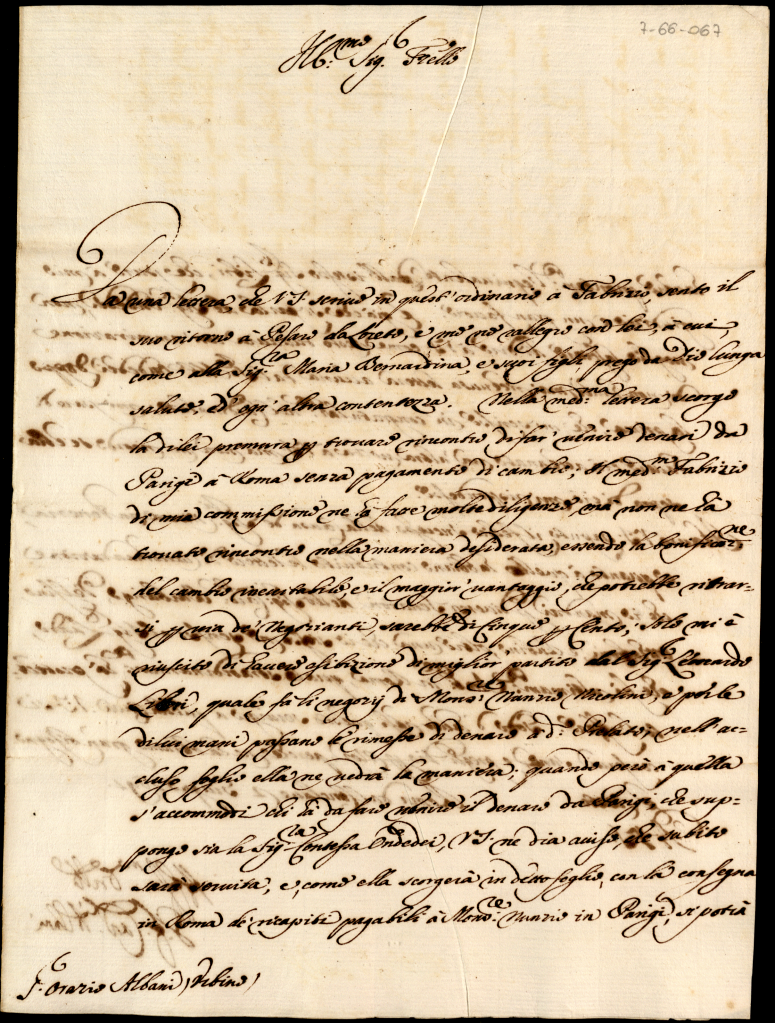 7-66-067
Ill.mo Sig.r Fr͠ello
Da una lettera, che VS scrive in quest'ordinario à Fabrizio, sento il
suo ritorno à Pesaro da Loreto, e me ne rallegro con lei, à cui,
come alla Sig.ra Maria Bernardina, e suoi figli, prego da Dio lunga
salute, ed ogn'altra contentezza. Nella med.ma lettera scorgo
la di lei premura p trovare rincontro di far venire denari da
Parigi à Roma senza pagamento di cambio; Il med.mo Fabrizio
di mia commissione ne hà fatte molte diligenze, mà non ne hà
trovato rincontro nella maniera desiderata, essendo la bonificaz.ne
del cambio inevitabile, e il maggior vantaggio, che potrebbe ritrar-
si p via de' Negozianti, sarebbe di cinque p Cento; solo mi è
riuscito di havere esibizione di miglior partito dal Sig.r Leonardo
Libri, quale fà li negozij di Mons.re Nunzio Nicolini, e p le
di lui mani passano le rimesse di denaro à d.o Prelato; nell'ac-
cluso foglio ella ne vedrà la maniera; quando però à quella
s'accommodi chi hà da fare venire il denaro da Parigi, che sup-
pongo sia la Sig.ra Contessa Ondedei, VS. ne dia aviso, che subito
sarà servita, e, come ella scorgerà in detto foglio, con la consegna
in Roma de' ricapiti pagabili à Mons.re Nunzio in Parigi, si potrà
S.r Orazio Albani (Urbino)